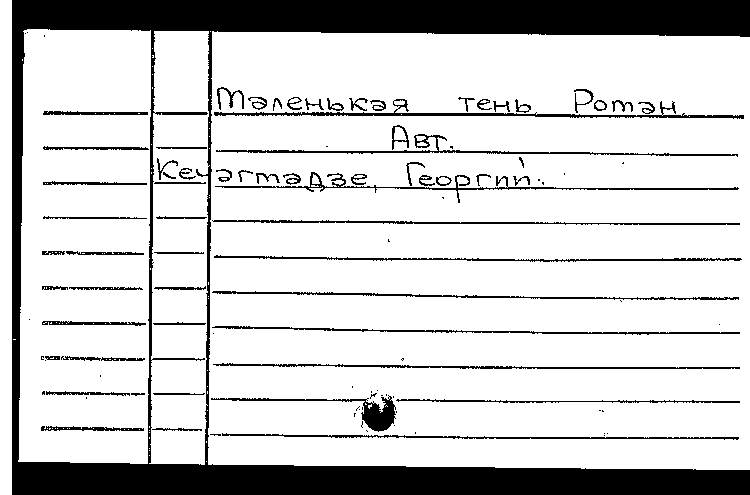 Маленькая тень Роман.
Авт.
Кечагмадзе, Георгий.